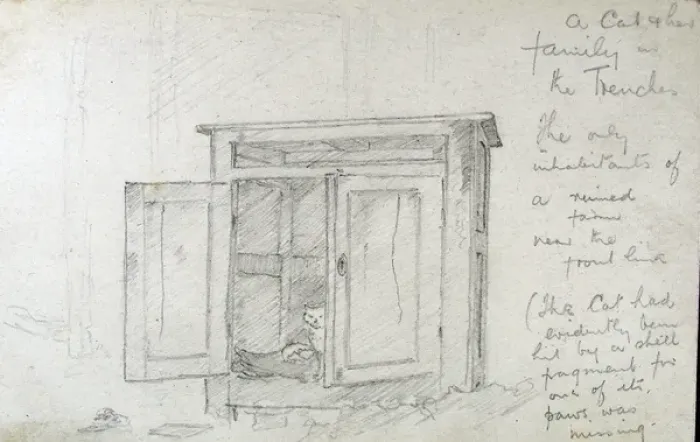 a Cat & her
family in
the Trenches
The only
inhabitants of
a ruined
farm
near the
front line
(The Cat had
evidently been
hit by a shell
fragment for
one of its
paws was
missing.